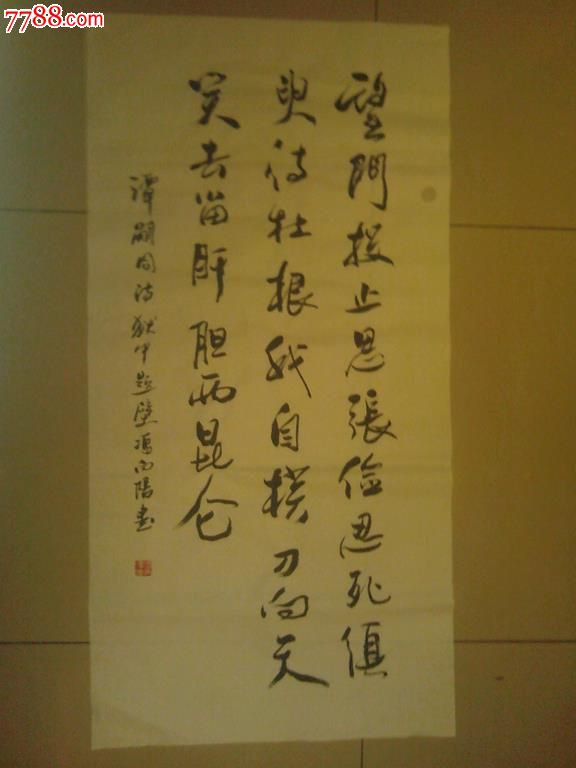 7788.com
望門投止思張俭忍死須
臾待杜根我自横刀向天
笑去留肝胆两昆仑
譚嗣同诗狱中题壁冯向陽书